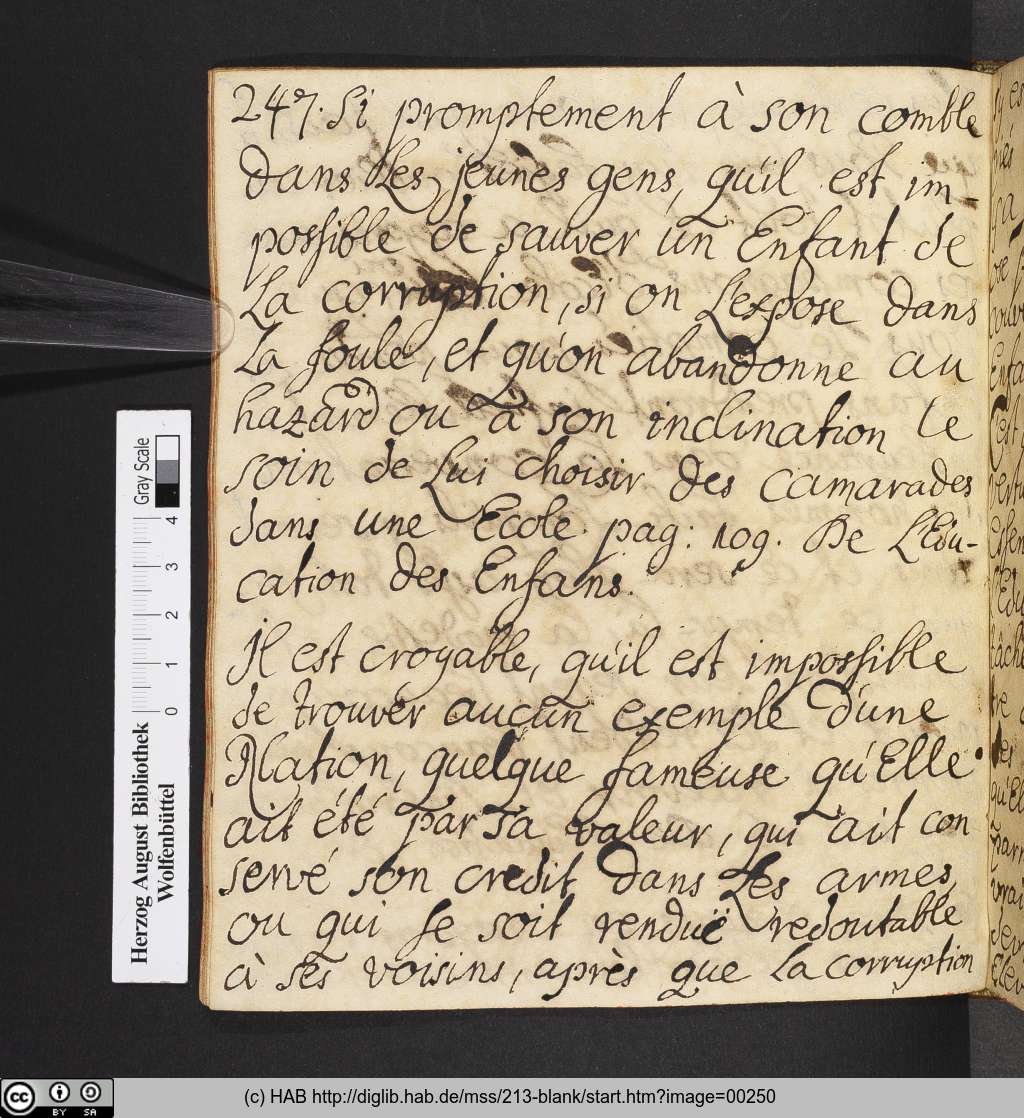 247. Si promptement à son comble
dans Les jeunes gens, qu'il est im-
possible de sauver un Enfant de
La corruption, si on L'expose dans
La foule, et qu'on abandonne au
hazard ou à son inclination le
soin de Lui choisir des camarades
dans une Ecole. pag: 109. De L'Edu-
cation des Enfans.
Il est croyable, qu'il est impossible
de trouver aucun exemple d'une
Nation, quelque fameuse qu'Elle
ait été par sa valeur, qui ait con
servé son credit dans Les armes,
ou qui se soit renduë redoutable
à ses voisins, après que La corruption
Gray Scale
0 1 2 3 4
Herzog August Bibliothek
Wolfenbüttel
cc BY SA
(c) HAB http://diglib.hab.de/mss/213-blank/start.htm?image=00250